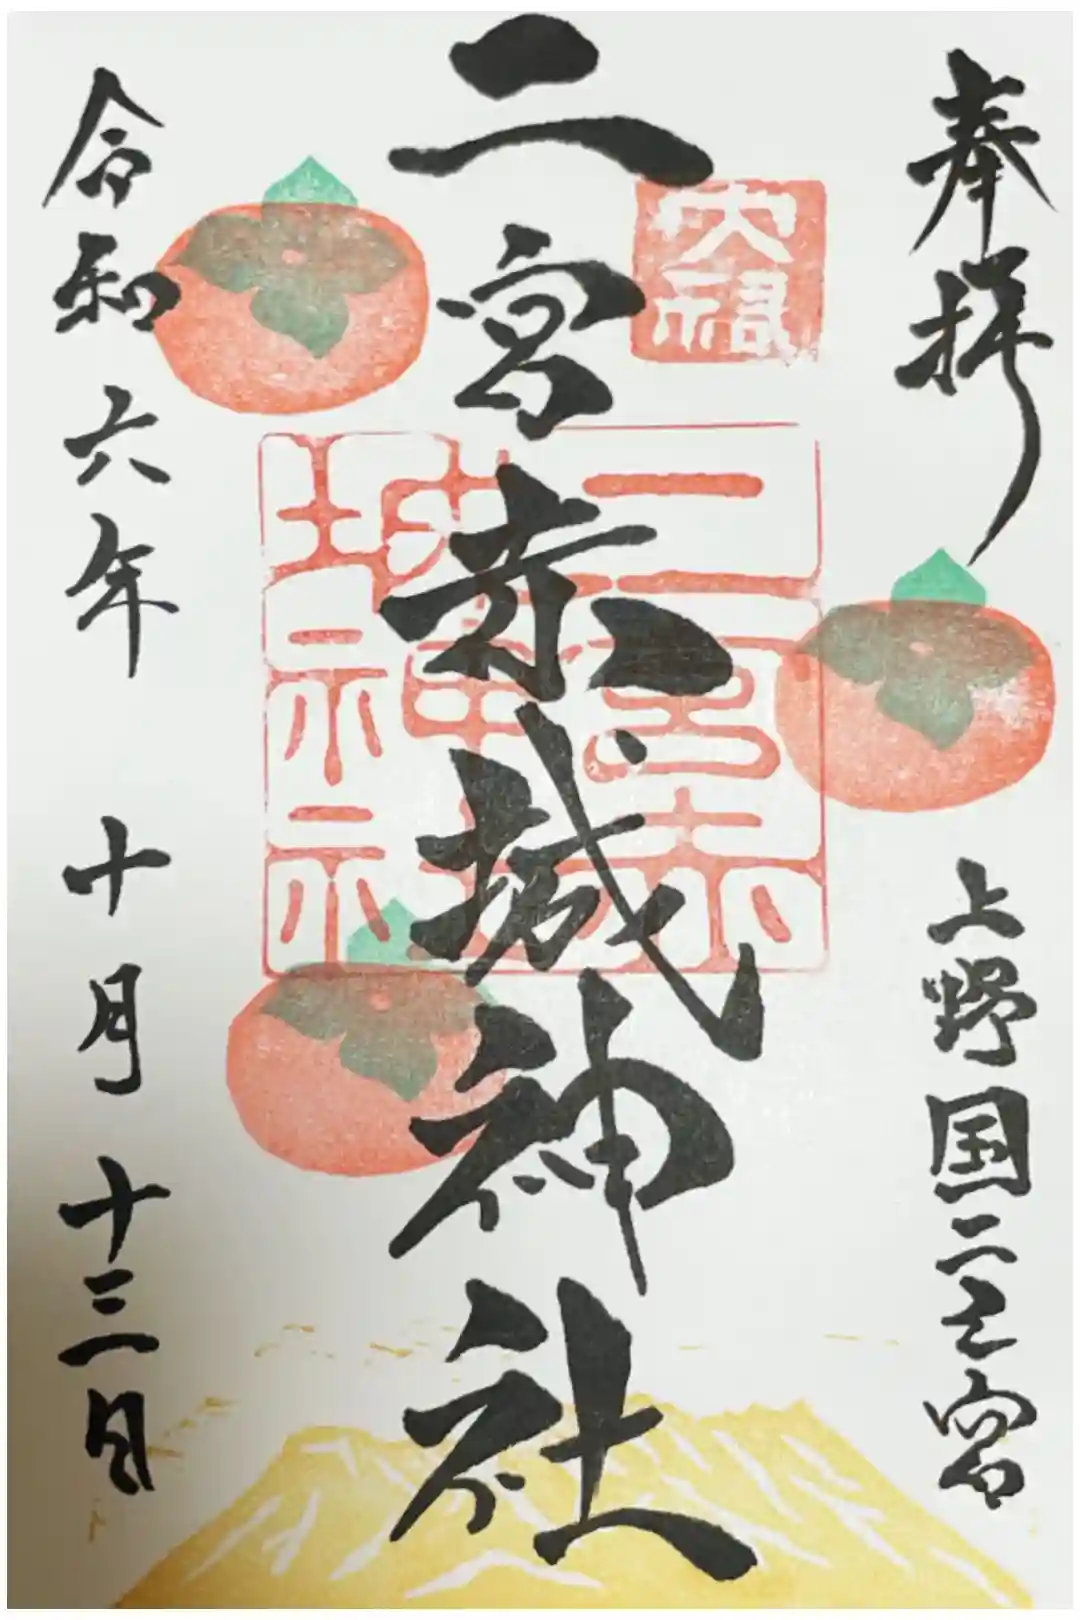 奉拝
上野国二之宮
大福
二宮赤城神社
二宮赤
城神社
璽
令和六年 十月 十三日